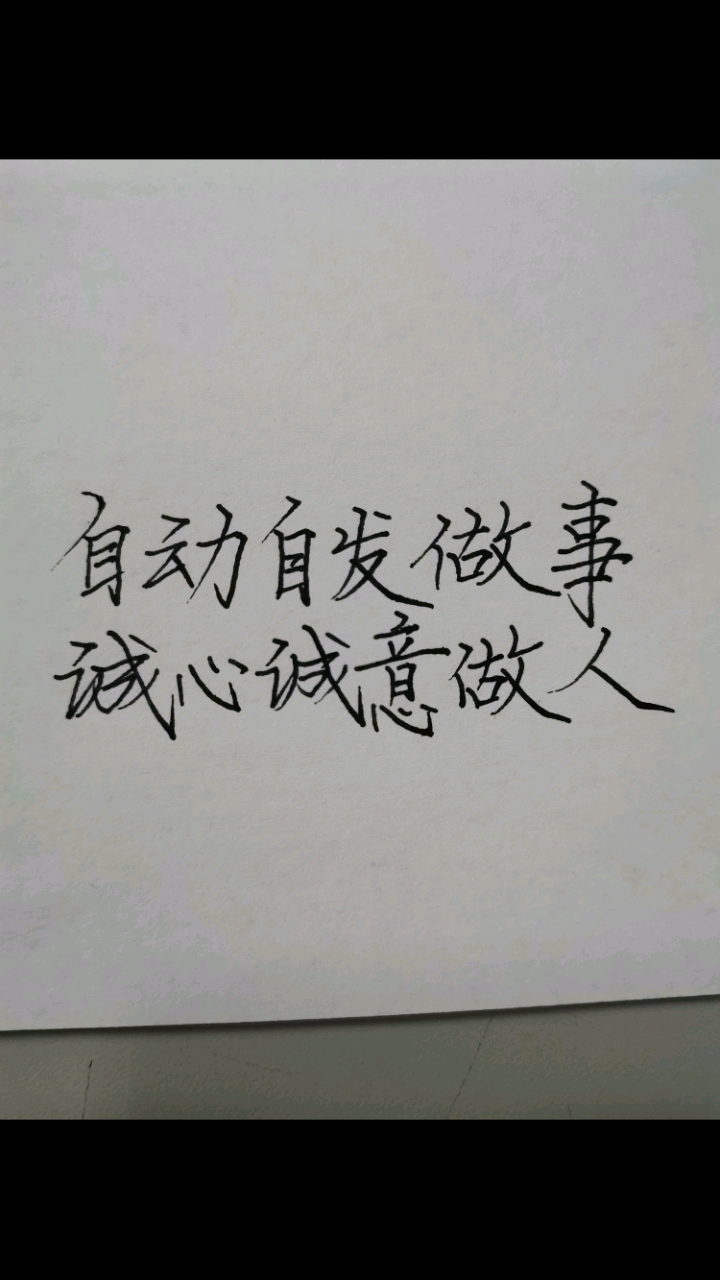 自动自发做事
诚心诚意做人